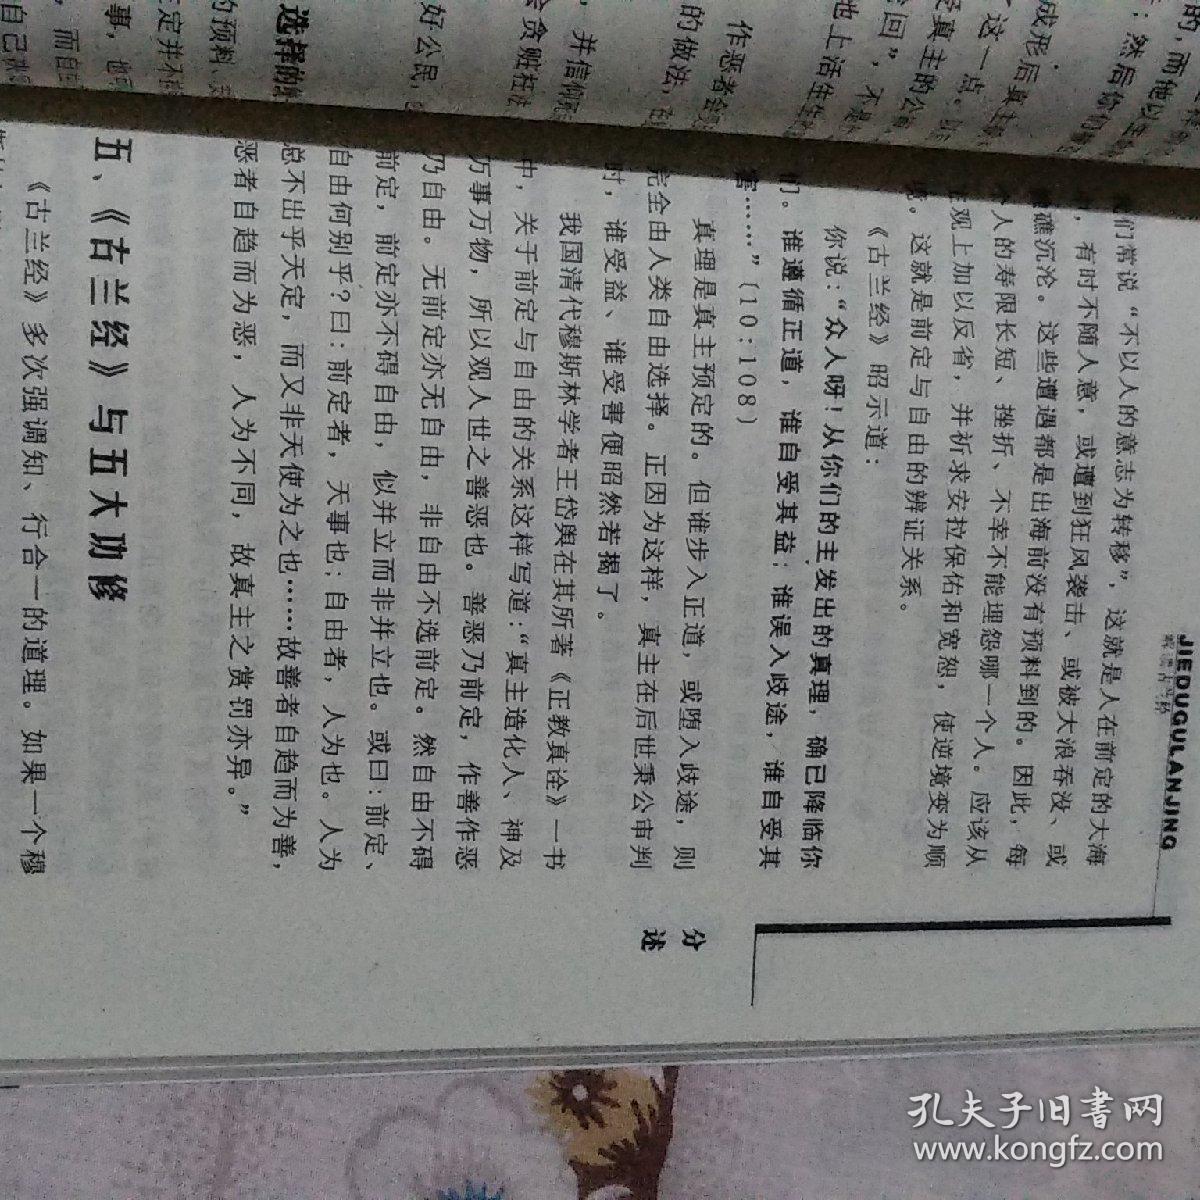 JIEDUGULANJING
解读古兰经
们常说“不以人的意志为转移”，这就是人在前定的大海
，有时不随人意，或遭到狂风袭击、或被大浪吞没、或
礁沉沦。这些遭遇都是出海前没有预料到的。因此，每
个人的寿限长短、挫折、不幸不能埋怨哪一个人。应该从
观上加以反省，并祈求安拉保佑和宽恕，使逆境变为顺
境。这就是前定与自由的辨证关系。
《古兰经》昭示道：
你说：“众人呀！从你们的主发出的真理，确已降临你
们。谁遵循正道，谁自受其益；谁误入歧途，谁自受其
害……”（10：108）
真理是真主预定的。但谁步入正道，或堕入歧途，则
完全由人类自由选择。正因为这样，真主在后世秉公审判
时，谁受益、谁受害便昭然若揭了。
我国清代穆斯林学者王岱舆在其所著《正教真诠》一书
中，关于前定与自由的关系这样写道：“真主造化人、神及
万事万物，所以观人世之善恶也。善恶乃前定，作善作恶
乃自由。无前定亦无自由，非自由不选前定。然自由不碍
前定，前定亦不碍自由，似并立而非并立也。或曰：前定、
自由何别乎？曰：前定者，天事也；自由者，人为也。人为
总不出乎天定，而又非天使为之也……故善者自趋而为善，
恶者自趋而为恶，人为不同，故真主之赏罚亦异。”
五、《古兰经》与五大功修
《古兰经》多次强调知、行合一的道理。如果一个穆
分
述
的，而他以
：然后你们
成形后真主
这一点。
真主的公
回”，不是
地上活生生
作恶者
的做法，
，并信仰
会贪赃枉法
好公民，
选择的
的预料、
定并不
事，他
，而自
自己
孔夫子旧书网
www.kongfz.com